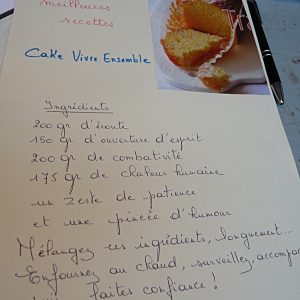 meilleures
recettes
Cake Vivre Ensemble
Ingrédients
200 gr d'écoute
150 gr d'ouverture d'esprit
200 gr de combativité
175 gr de chaleur humaine
un zeste de patience
et une pincée d'humour
Mélangez ces ingrédients, longuement...
Enfournez au chaud, surveillez, accompa
faites confiance !